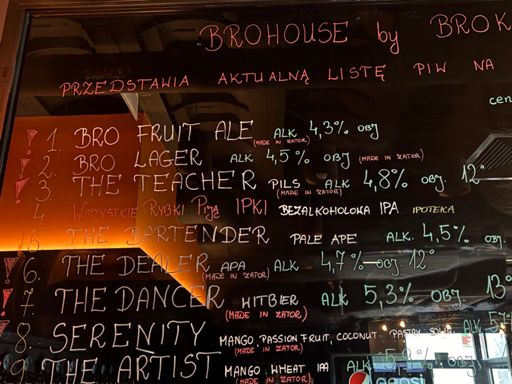 BROHOUSE by BROK
PRZEDSTAWIA AKTUALNĄ LISTĘ PIW NA
cen
! 1. BRO FRUIT ALE (MADE IN ZATOR) ALK 4,3% OBJ
! 2. BRO LAGER ALK 4,5% OBJ (MADE IN ZATOR)
! 3. THE TEACHER PILS (MADE IN ZATOR) ALK 4,8% OBJ. 12°
4 WSZYSTKIE RYBKI Piją IPKI BEZALKOHOLOWA IPA IPOTEKA
5 THE BARTENDER PALE APE ALK. 4,5% OBJ.
! 6. THE DEALER APA (MADE IN ZATOR) ALK 4,7% OBJ 12°
! 7. THE DANCER WITBIER (MADE IN ZATOR) ALK 5,3% OBJ. 13°
! 8. SERENITY MANGO, PASSION FRUIT, COCONUT PASTRY SOUR ALK 5%
(MADE IN ZATOR)
9 THE ARTIST MANGO WHEAT IPA
(MADE IN ZATOR)